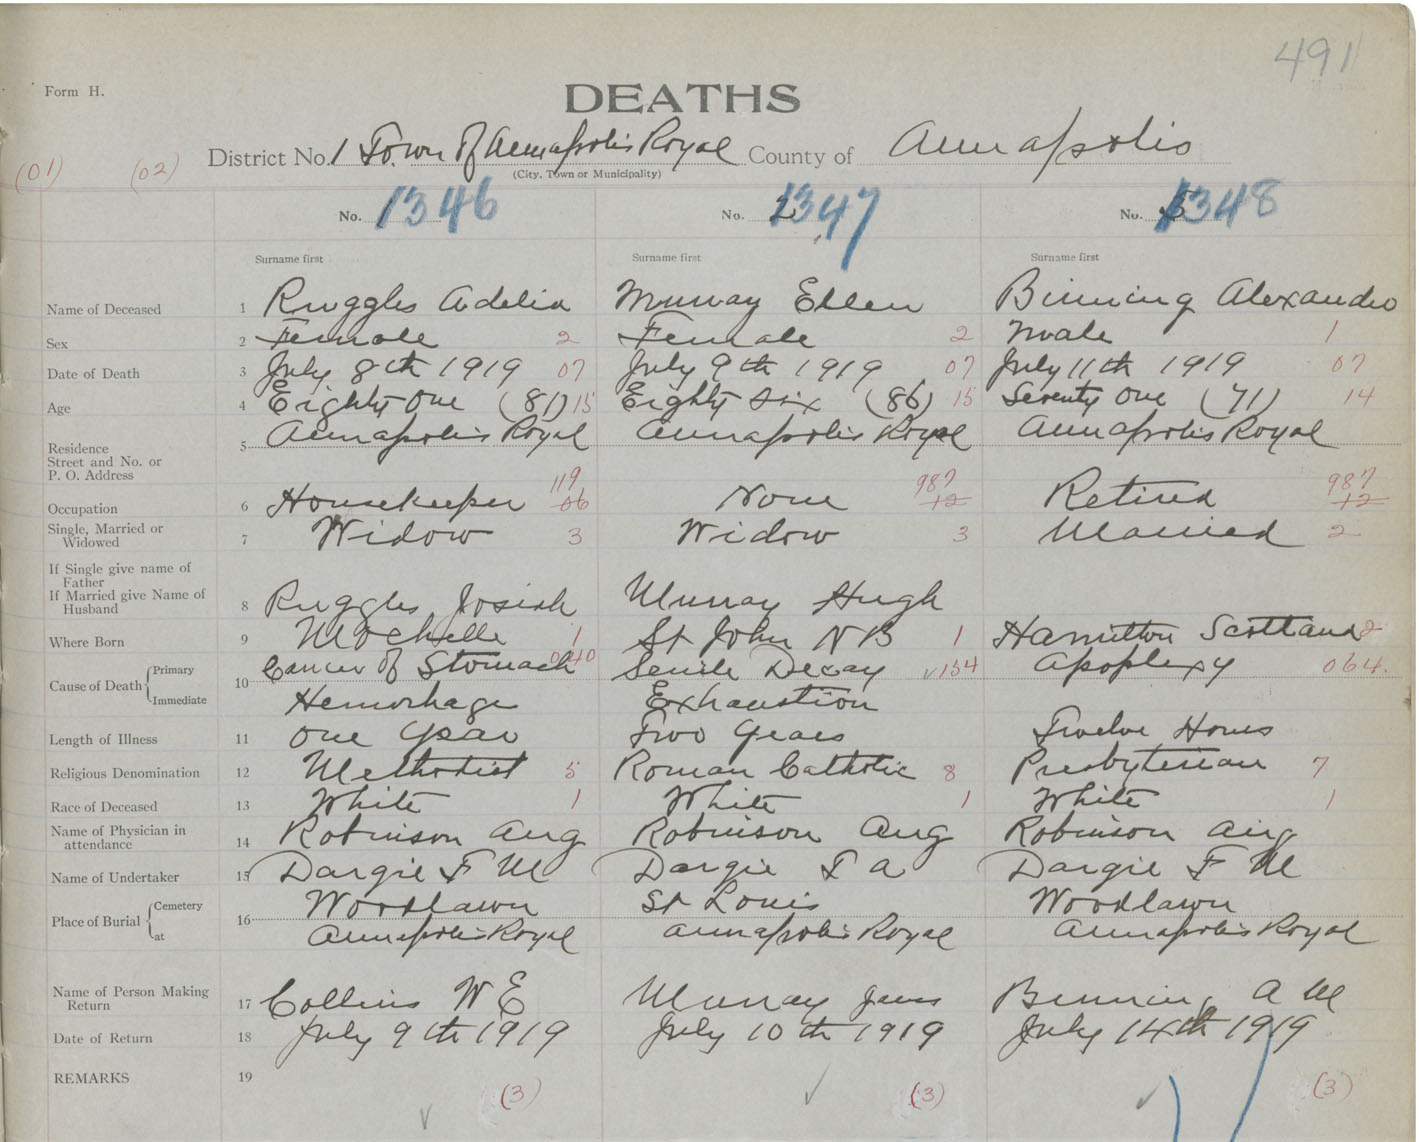 491
Form H.
DEATHS
District No. 1 Town of Annapolis Royal County of Annapolis
(City, Town or Municipality)
(01) (02)
No. 1346 No. 2 1347 No. 3 1348
Surname first Surname first Surname first
Name of Deceased 1 Ruggles Adelia Murray Ellen Binning Alexander
Sex 2 Female 2 Female 2 Male 1
Date of Death 3 July 8th 1919 07 July 9th 1919 07 July 11th 1919 07
Age 4 Eighty One (81) 15 Eighty Six (86) 15 Seventy One (71) 14
Residence
Street and No. or
P. O. Address
5 Annapolis Royal Annapolis Royal Annapolis Royal
119 987 987
Occupation 6 Housekeeper 06 None 12 Retired 12
Single, Married or
Widowed 7 Widow 3 Widow 3 Married 2
If Single give name of
Father
If Married give Name of
Husband 8 Ruggles Josiah Murray Hugh
Where Born 9 Mochelle 1 St John N B 1 Hamilton Scotland 2
Cause of Death Primary 10 Cancer of Stomach 0440 Senile Decay 154 Apoplexy 064.
Immediate Hemorhage Exhaustion
Length of Illness 11 One Year Two Years Twelve Hours
Religious Denomination 12 Methodist 5 Roman Catholic 8 Presbyterian 7
Race of Deceased 13 White 1 White 1 White 1
Name of Physician in
attendance 14 Robinson Aug Robinson Aug Robinson Aug
Name of Undertaker 15 Dargie F M Dargie F A Dargie F M
Place of Burial Cemetery 16 Woodlawn St Louis Woodlawn
at Annapolis Royal Annapolis Royal Annapolis Royal
Name of Person Making
Return 17 Collins W E Murray James Binning A M
Date of Return 18 July 9th 1919 July 10th 1919 July 14th 1919
REMARKS 19
(3) (3) (3)